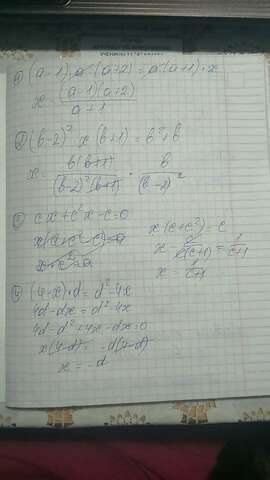 а) (a-1) a (a+2) = a (a+1) · x
x = (a-1)(a+2) / a+1
(b-2)² x (b+1) = b²+b
x = b(b+1) / (b-2)²(b+1) · b / (b-2)²
cx+c²x-c=0
x(c+c²)-c
x - c / c(c+1) = 1 / c+1
x = 1 / c+1
(4-x)·d = d²-4x
4d-dx = d²-4x
4d-d²+4x-dx=0
x(4-d) = -d(4-d)
x = -d